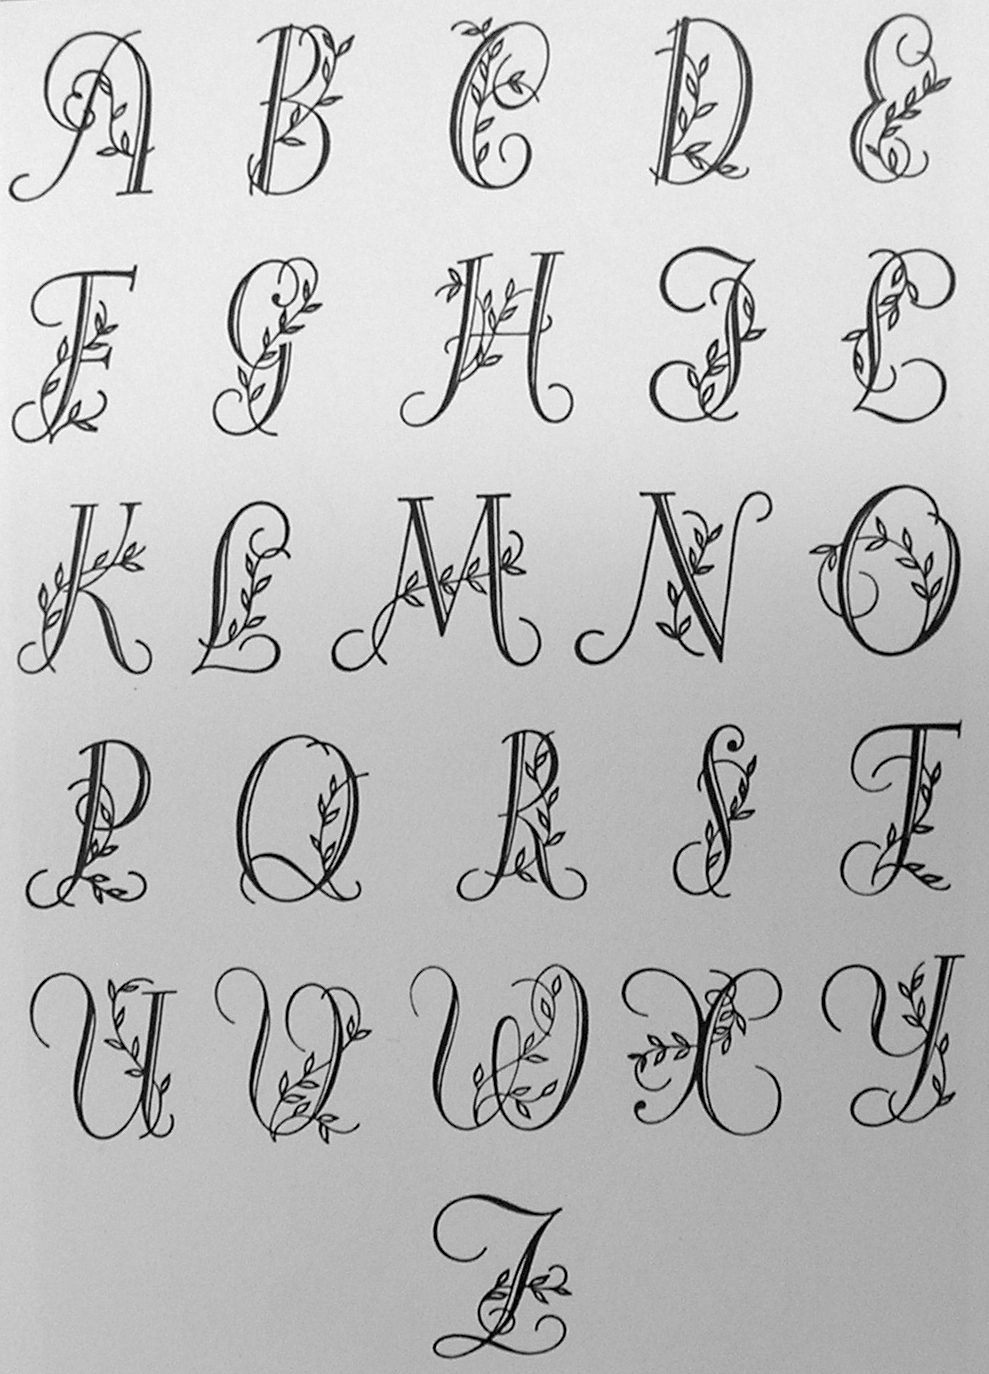 A B C D E
F G H I L
K L M N O
P Q R S T
U V W X Y
Z